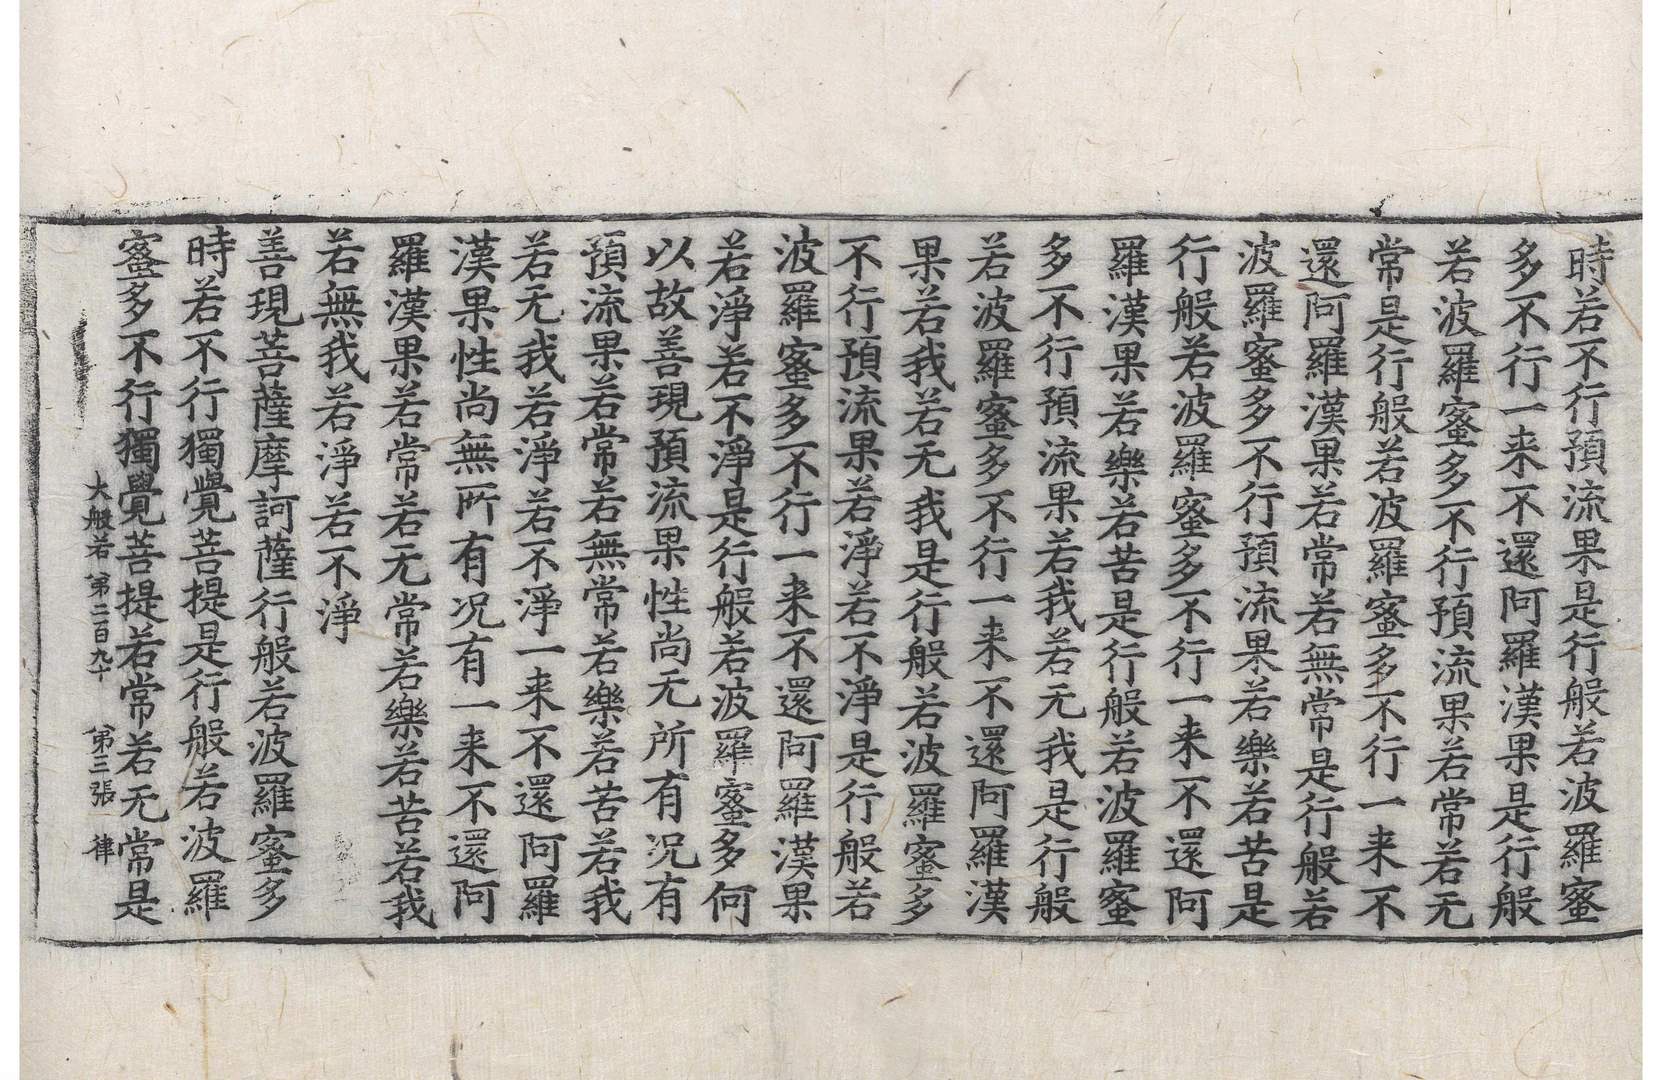 時若不行預流果是行般若波羅蜜
多不行一来不還阿羅漢果是行般
若波羅蜜多不行預流果若常若无
常是行般若波羅蜜多不行一来不
還阿羅漢果若常若無常是行般若
波羅蜜多不行預流果若樂若苦是
行般若波羅蜜多不行一来不還阿
羅漢果若樂若苦是行般若波羅蜜
多不行預流果若我若无我是行般
若波羅蜜多不行一来不還阿羅漢
果若我若无我是行般若波羅蜜多
不行預流果若淨若不淨是行般若
波羅蜜多不行一来不還阿羅漢果
若淨若不淨是行般若波羅蜜多何
以故善現預流果性尚无所有况有
預流果若常若無常若樂若苦若我
若无我若淨若不淨一来不還阿羅
漢果性尚無所有况有一来不還阿
羅漢果若常若无常若樂若苦若我
若無我若淨若不淨
善現菩薩摩訶薩行般若波羅蜜多
時若不行獨覺菩提是行般若波羅
蜜多不行獨覺菩提若常若无常是
大般若 第二百九十 第三張 律